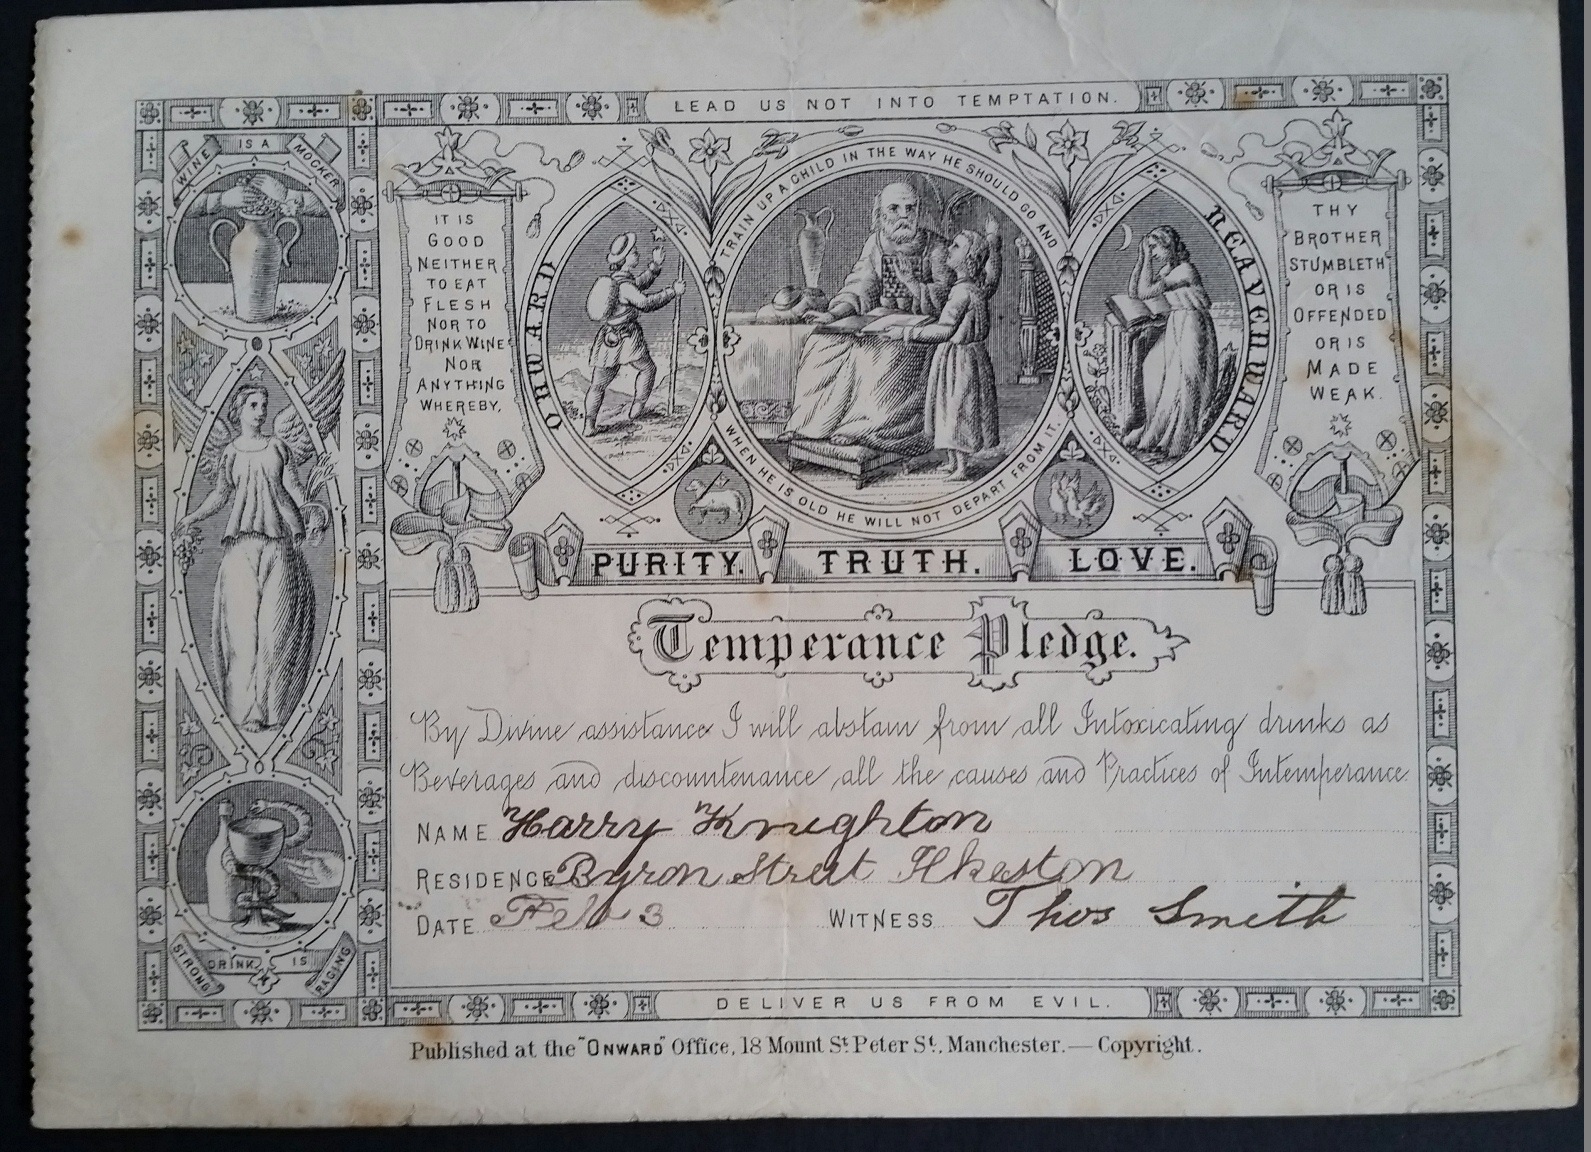 LEAD US NOT INTO TEMPTATION.
WINE IS A MOCKER
IT IS
GOOD
NEITHER
TO EAT
FLESH
NOR TO
DRINK WINE
NOR
ANYTHING
WHEREBY,
ONWARD
TRAIN UP A CHILD IN THE WAY HE SHOULD GO AND
WHEN HE IS OLD HE WILL NOT DEPART FROM IT.
HEAVENWARD
THY
BROTHER
STUMBLETH
OR IS
OFFENDED
OR IS
MADE
WEAK.
PURITY. TRUTH. LOVE.
Temperance Pledge.
By Divine assistance I will abstain from all Intoxicating drinks as
Beverages and discountenance all the causes and Practices of Intemperance.
NAME Harry Knighton
RESIDENCE Byron Street Ilkeston
DATE Feb 3 WITNESS Thos Smith
STRONG DRINK IS RAGING
DELIVER US FROM EVIL.
Published at the "ONWARD" Office, 18 Mount St. Peter St. Manchester.— Copyright.